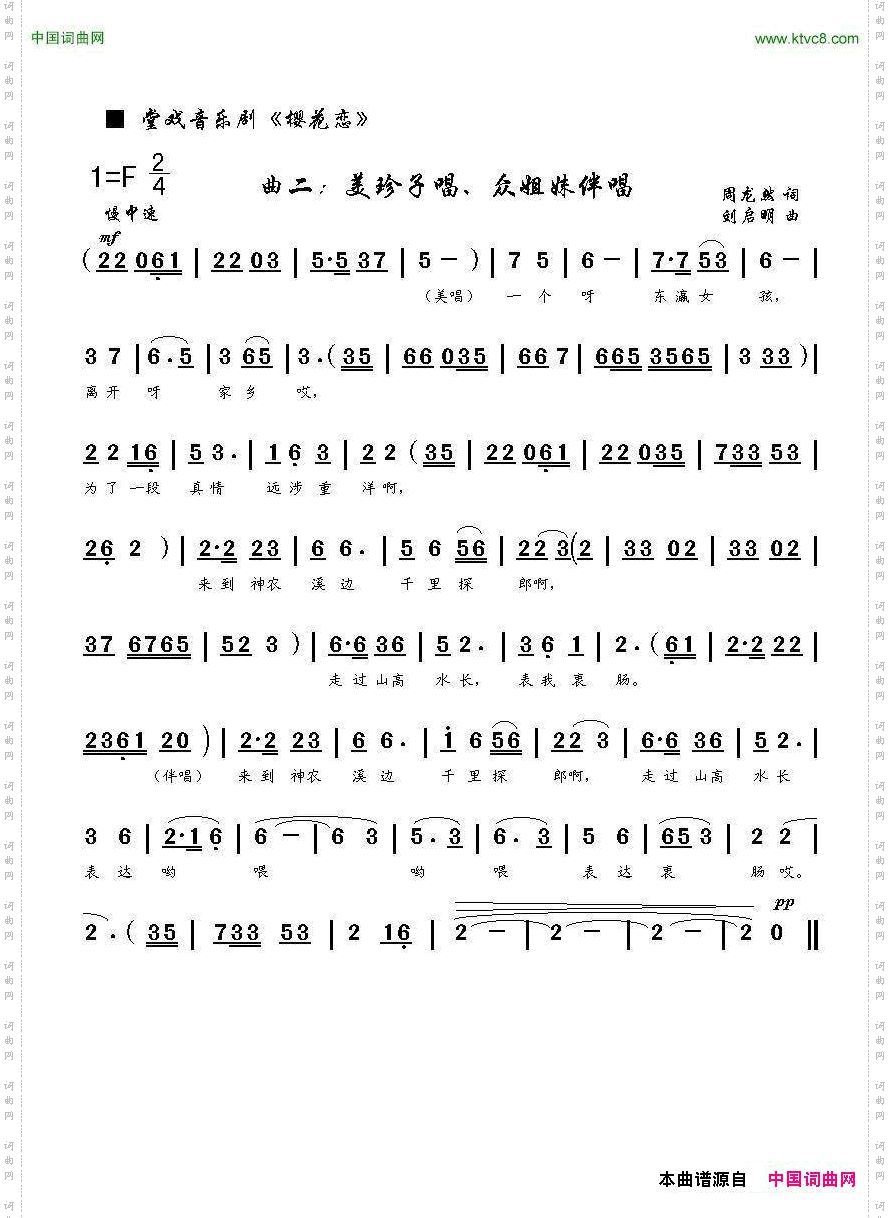 中国词曲网 www.ktvc8.com
■ 堂戏音乐剧《樱花恋》
1=F 2/4
曲二：美珍子唱、众姐妹伴唱
周龙然 词
慢中速
刘启明 曲
mf
( 22 061 | 22 03 | 5·5 37 | 5 － ) | 7 5 | 6 － | 7·7 53 | 6 － |
（美唱） 一 个 呀 东 瀛 女 孩，
3 7 | 6.5 | 3 65 | 3.( 35 | 66 035 | 66 7 | 665 3565 | 3 33 ) |
离 开 呀 家 乡 哎，
2 2 16 | 5 3. | 1 6 3 | 2 2 ( 35 | 22 061 | 22 035 | 733 53 |
为 了 一段 真 情 远 涉 重 洋 啊，
26 2 ) | 2·2 23 | 6 6. | 5 6 56 | 22 3(2 | 33 02 | 33 02 |
来 到 神农 溪 边 千 里 探 郎啊，
37 6765 | 52 3 ) | 6·6 36 | 5 2. | 3 6 1 | 2.( 61 | 2·2 22 |
走 过 山高 水 长， 表 我 衷 肠。
2361 20 ) | 2·2 23 | 6 6. | 1 6 56 | 22 3 | 6·6 36 | 5 2. |
（伴唱） 来 到 神农 溪 边 千 里 探 郎啊， 走 过 山高 水 长
3 6 | 2·1 6 | 6 － | 6 3 | 5. 3 | 6. 3 | 5 6 | 65 3 | 2 2 |
表 达 哟 喂 哟 喂 表 达 衷 肠 哎。
pp
2 .( 35 | 733 53 | 2 16 | 2 － | 2 － | 2 － | 2 0 ‖
本曲谱源自 中国词曲网